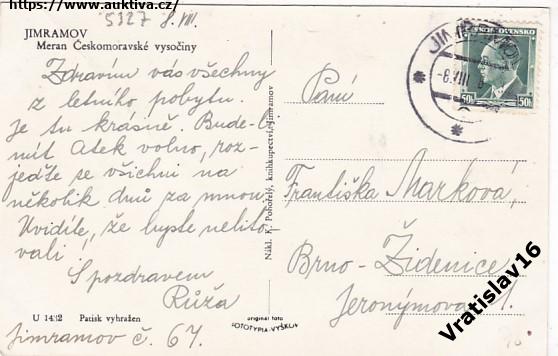 https://www.auktiva.cz/
5327 8. VIII.
JIMRAMOV
Meran Českomoravské vysočiny
Zdravím vás všechny
z letního pobytu.
Je tu krásně. Bude-li
mít Atek volno, roz-
jeďte se všichni na
několik dnů za mnou.
Uvidíte, že byste nelito-
vali!
S pozdravem
Růža
U 1412 Patisk vyhražen
Jimramov č. 67.
Nákl. K. Pohořelý, knihkupectví, Jimramov
originál foto
FOTOTYPIA-VYŠKOV
JIMRAMOV
-8.VIII
ČESKOSLOVENSKO
50h 50h
Paní
Františka Marková,
Brno-Židenice
Jeronýmova 1.
Vratislav16